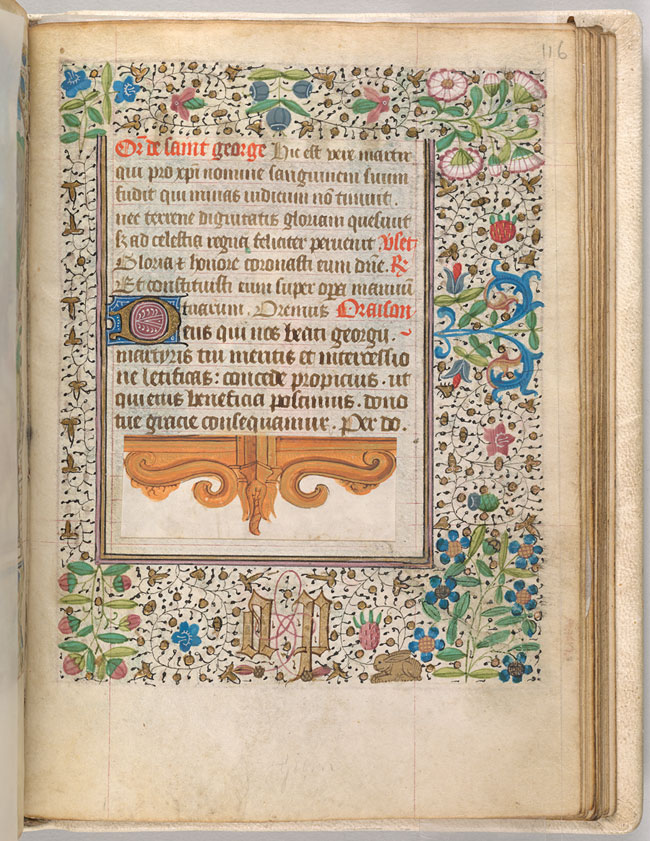 116
Or̃ de saint george Hic est vere martir
qui pro xp̃i nomine sanguinem suum
fudit qui minas iudicum nõ timuit .
nec terrene dignitatis gloriam quesiuit
s; ad celestia regna feliciter peruenit Vset
Gloria & honore coronasti eum dñe . R̃
Et constituisti eum super opera manuũ
tuarum . Oremus Oraison
Deus qui nos beati georgii
martyris tui meritis et intercessio
ne letificas : concede propicius . ut
qui eius beneficia poscimus . dono
tue gracie consequamur . Per do .